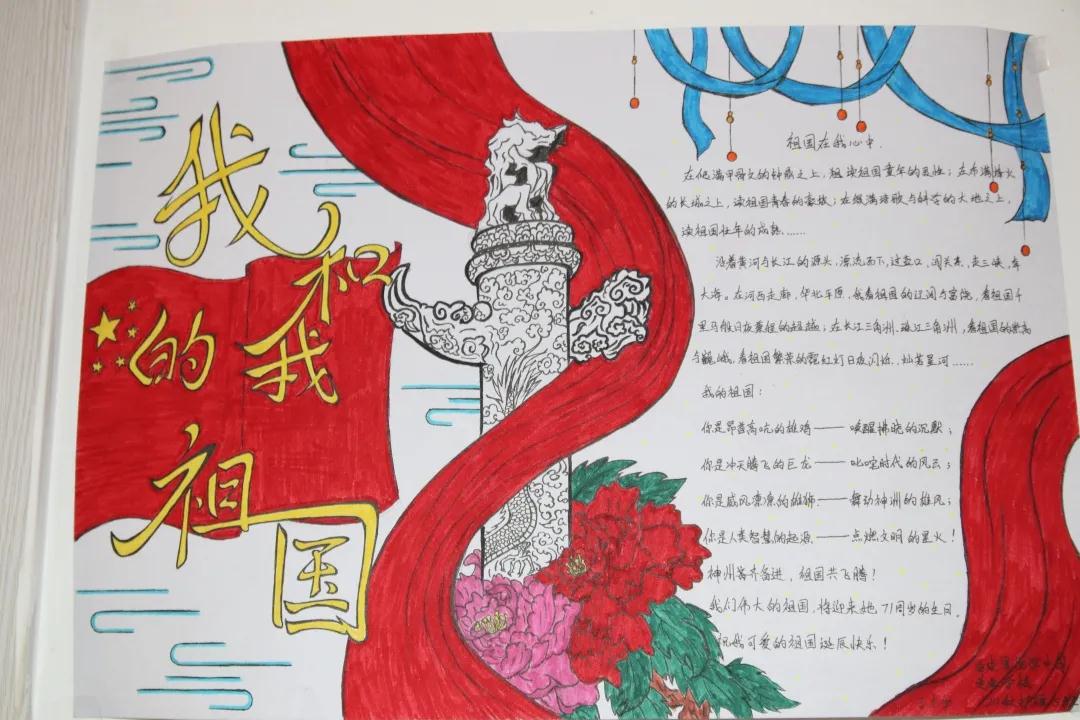 我和我
的
祖
国
祖国在我心中.
在低满甲骨文的钟鼎之上,组读祖国童年的灵性;在布满烽火
的长城之上,读祖国青春的豪放;在缀满诗歌与科学的大地之上,
读祖国壮年的成熟……
沿着黄河与长江的源头,漂流而下,过壶口,闯关东,走三峡,奔
大海。在河西走廊,华北平原,我看祖国的辽阔与富饶,看祖国千
里马般日夜兼程的超越;在长江三角洲,珠江三角洲,看祖国的崇高
与巍峨,看祖国繁荣的霓虹灯日夜闪烁,灿若星河……
我的祖国:
你是昂首高吭的雄鸡——唤醒拂晓的沉默;
你是冲天腾飞的巨龙——叱咤时代的风云;
你是威风凛凛的雄狮——舞动神州的雄风;
你是人类智慧的起源——点燃文明的星火!
神州齐奋进,祖国共飞腾!
我们伟大的祖国,将迎来她71周岁的生日。
祝我可爱的祖国诞辰快乐!